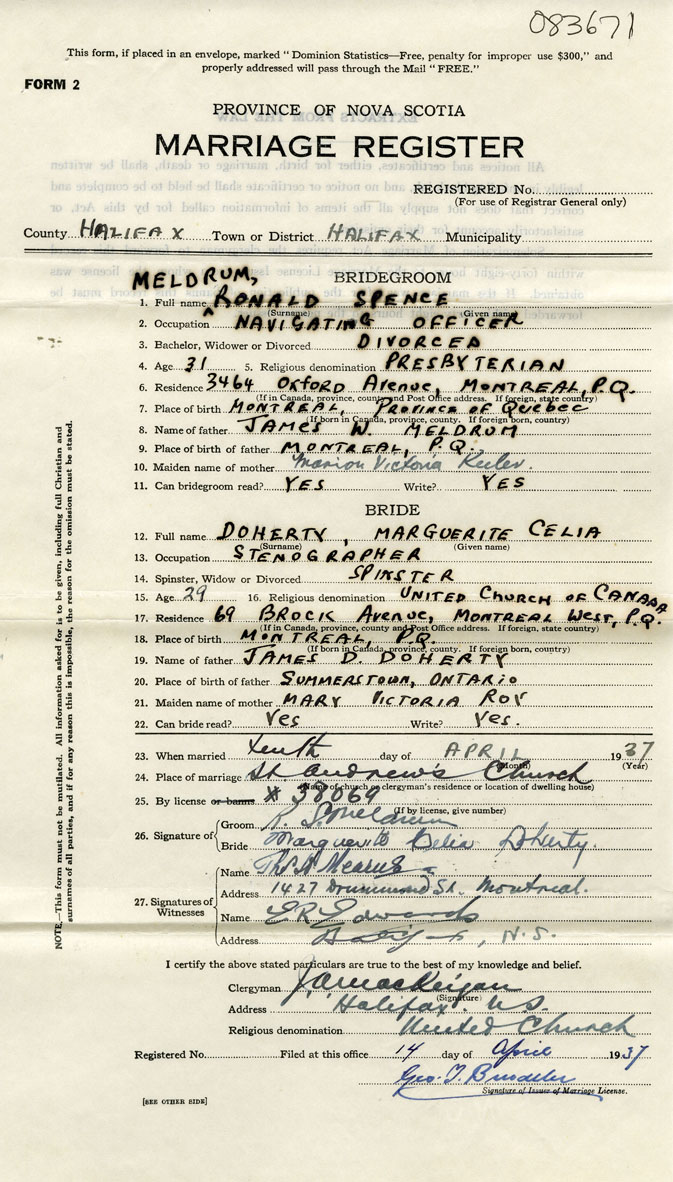 083671
This form, if placed in an envelope, marked "Dominion Statistics—Free, penalty for improper use $300," and
properly addressed will pass through the Mail "FREE."
FORM 2
PROVINCE OF NOVA SCOTIA
MARRIAGE REGISTER
REGISTERED No.
(For use of Registrar General only)
County HALIFAX Town or District HALIFAX Municipality
MELDRUM, BRIDEGROOM
1. Full name RONALD SPENCE
(Surname) (Given name)
2. Occupation NAVIGATING OFFICER
3. Bachelor, Widower or Divorced DIVORCED
4. Age 31 5. Religious denomination PRESBYTERIAN
6. Residence 3464 OXFORD Avenue, MONTREAL, P.Q.
(If in Canada, province, county and Post Office address. If foreign, state country)
7. Place of birth MONTREAL, PROVINCE OF QUEBEC
(If born in Canada, province, county. If foreign born, country)
8. Name of father JAMES W. MELDRUM
9. Place of birth of father MONTREAL, P.Q.
10. Maiden name of mother Marion Victoria
11. Can bridegroom read? YES Write? YES
BRIDE
12. Full name DOHERTY, MARGUERITE CELIA
(Surname) (Given name)
13. Occupation STENOGRAPHER
14. Spinster, Widow or Divorced SPINSTER
15. Age 29 16. Religious denomination UNITED CHURCH OF CANADA
17. Residence 69 BROCK Avenue, MONTREAL WEST, P.Q.
(If in Canada, province, county and Post Office address. If foreign, state country)
18. Place of birth MONTREAL, P.Q.
(If born in Canada, province, county. If foreign born, country)
19. Name of father JAMES D. DOHERTY
20. Place of birth of father SUMMERSTOWN, ONTARIO
21. Maiden name of mother MARY VICTORIA ROY
22. Can bride read? Yes Write? Yes.
23. When married tenth day of APRIL 1937
(Month) (Year)
24. Place of marriage St. Andrew's Church
(Name of church or clergyman's residence or location of dwelling house)
25. By license or banns # 38069
(If by license, give number)
26. Signature of Groom R. S. Meldrum
Bride Marguerite Celia Doherty.
27. Signatures of Witnesses
Name
Address 1427 Drummond St. Montreal.
Name Edwards
Address Halifax, N.S.
NOTE.—This form must not be mutilated. All information asked for is to be given, including full Christian and
surnames of all parties, and if for any reason this is impossible, the reason for the omission must be stated.
I certify the above stated particulars are true to the best of my knowledge and belief.
Clergyman
(Signature)
Address Halifax. N.S.
Religious denomination United Church
Registered No. Filed at this office 14 day of April 1937
Geo. T.
Signature of Issuer of Marriage License.
[SEE OTHER SIDE]